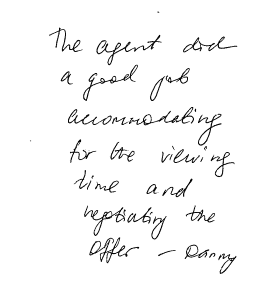 The agent did
a good job
accommodating
for the viewing
time and
negotiating the
offer - Danny